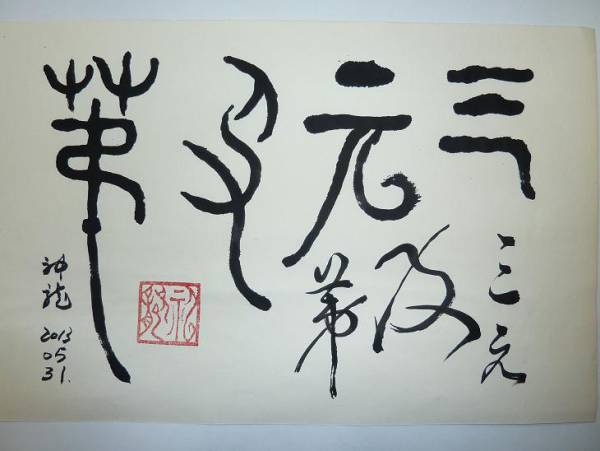 三元及第
三元及第
神龍
2013
05
31.